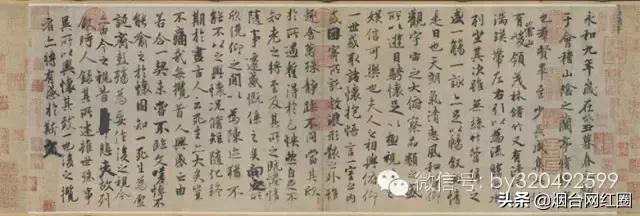 永和九年歲在癸丑暮春
于會稽山陰之蘭亭脩
也群賢畢至少長咸集
有崇山峻領茂林脩竹又有清
湍暎帶左右引以為流觴
列坐其次雖無絲竹管
盛一觴一詠亦足以暢敘
是日也天朗氣清惠風和
觀宇宙之大俯察品類
所以遊目騁懷足以極視
娛信可樂也夫人之相與俯仰
一世或取諸懷抱悟言一室之內
或因寄所託放浪形骸之外雖
趣舍萬殊靜躁不同當其欣
於所遇蹔得於己怏然自足不
知老之將至及其所之既惓情
隨事遷感慨係之矣向之所
欣俛仰之閒以為陳迹猶不
能不以之興懷況脩短隨化終
期於盡古人云死生亦大矣豈
不痛哉每攬昔人興感之由
若合一契未嘗不臨文嗟悼不
能喻之於懷固知一死生為虛
誕齊彭殤為妄作後之視今
亦由今之視昔悲夫故列
敘時人錄其所述雖世殊事
異所以興懷其致一也後之攬
者亦將有感於斯文
微信号: by320492599
头条 @烟台网红圈